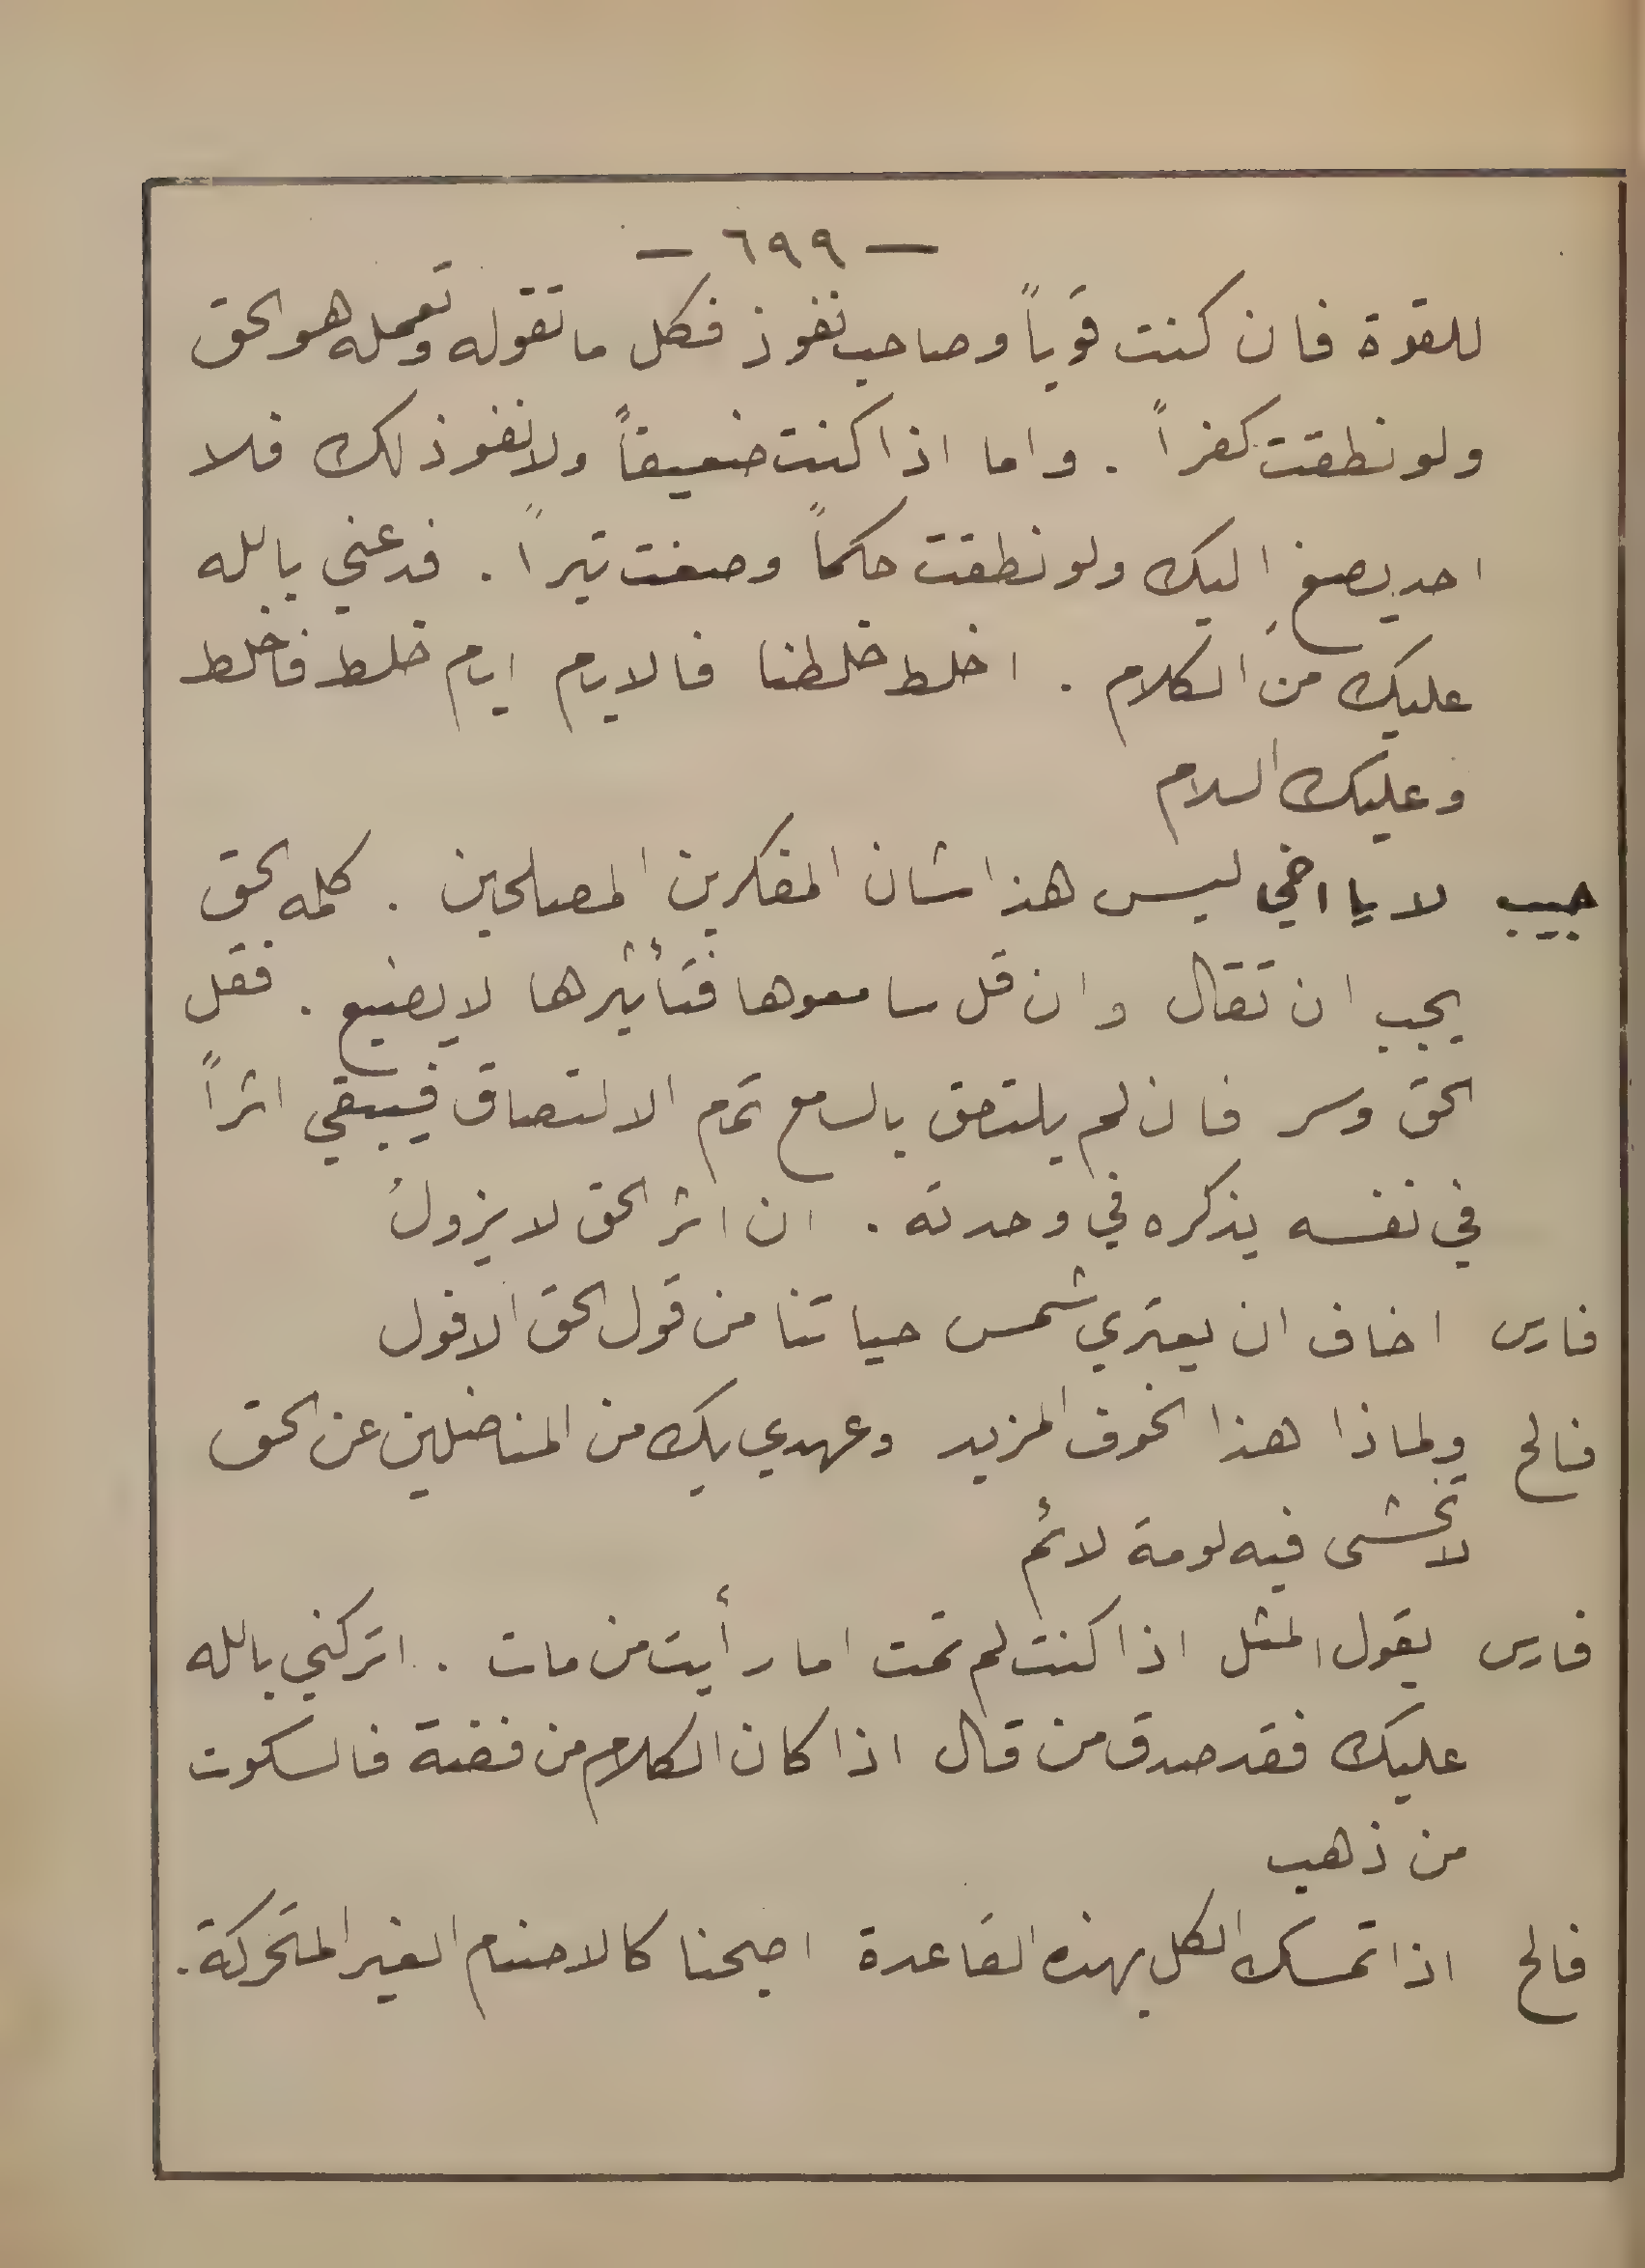 — ٦٩٩ —
للقوة فان كنت قوياً وصاحب نفوذ فكل ما تقوله وتعمله هو الحق
ولو نطقت كفراً . واما اذا كنت ضعيفاً ولا نفوذ لك فلا
احد يصغِ اليك ولو نطقت حكماً وصغت تبراً . فدعني بالله
عليك من الكلام . اخلط خلطنا فالايام ايام خلط فاخلط
وعليك السلام
حبيب لا يا اخي ليس هذا شان المفكرين المصلحين . كلمه الحق
يجب ان تقال وان قل سامعوها فتأثيرها لا يضيع . فقل
الحق وسر فان لم يلتصق بالسامع تمام الالتصاق فيبقي اثراً
في نفسه يذكره في وحدته . ان اثر الحق لا يزولُ
فارس اخاف ان يعتري شمس حياتنا من قول الحق الافول
فالح ولماذا هذا الخوف المزيد وعهدي بك من المناضلين عن الحق
لا تخشى فيه لومة لائم
فارس يقول المثل اذا كنت لم تمت اما رأيت من مات . اتركني بالله
عليك فقد صدق من قال اذا كان الكلام من فضة فالسكوت
من ذهب
فالح اذا تمسك الكل بهذه القاعدة اصبحنا كالاصنام الغير المتحركة .